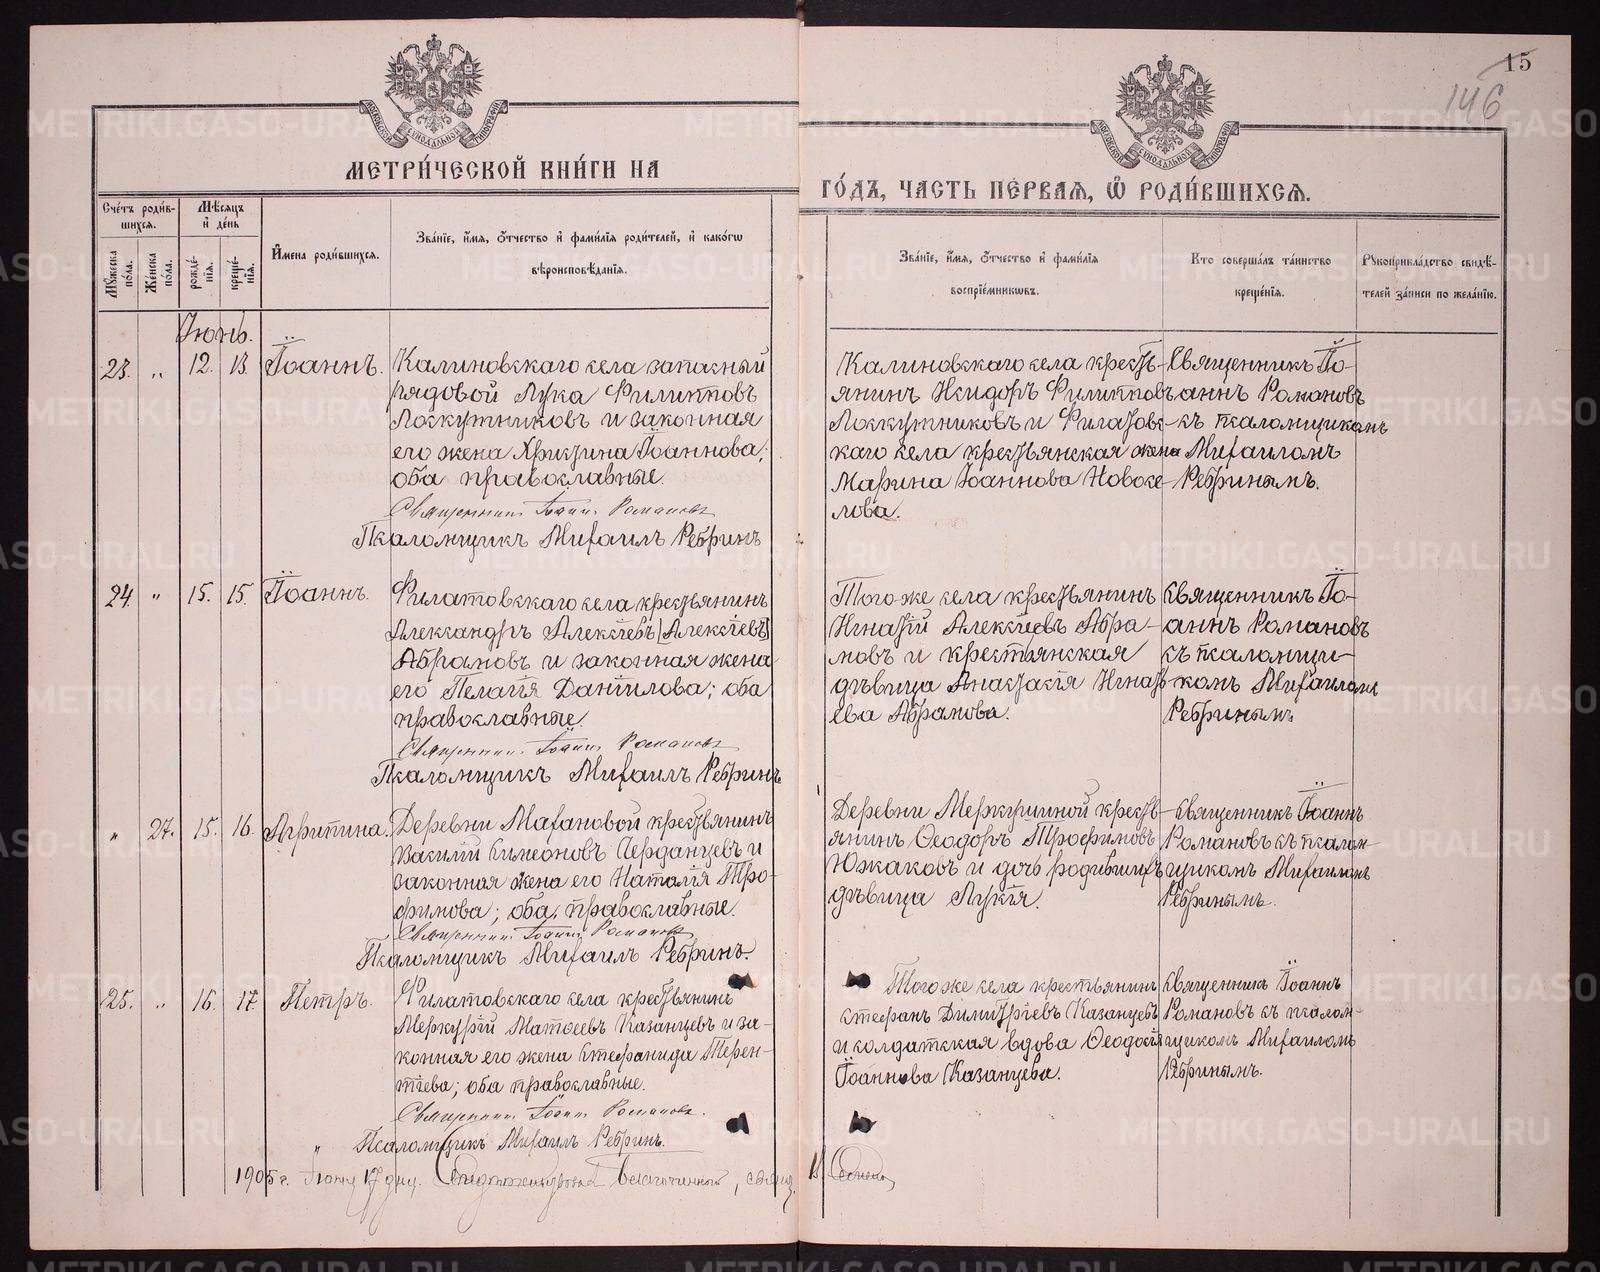 15
146
МЕТРИ́ЧЕСКОЙ КНИ́ГИ НА
ГО́ДЪ, ЧАСТЬ ПЕ́РВАЯ, Ѿ РОДИ́ВШИХСЯ.
Сче́тъ роди́в-
шихся.
Мѣ́сяцъ
и де́нь
Му́жеска по́ла.
Же́нска по́ла.
рожде́-
нїя.
креще́-
нїя.
И́мена роди́вшихся.
Зва́нїе, и́мя, о́тчество и фами́лїя роди́телей, и како́гѡ
вѣроисповѣ́данїя.
Зва́нїе, и́мя, о́тчество и фами́лїя
воспрїе́мникѡвъ.
Кто соверша́лъ та́инство
креще́нїя.
Рукоприкла́дство свидѣ́-
телей за́писи по жела́нїю.
Іюнь.
23. „ 12. 13. Іоаннъ.
Калиновскаго села запасный
рядовой Лука Филипповъ
Лоскутниковъ и законная
его жена Христина Іоаннова;
оба православные.
Священникъ Іоаннъ Романовъ
Псаломщикъ Михаилъ Ребринъ
Калиновскаго села кресть-
янинъ Исидоръ Филипповъ
Лоскутниковъ и Филатовс-
каго села крестьянская жена
Марина Іоаннова Новосе-
лова.
Священникъ Іо-
аннъ Романовъ
съ псаломщикомъ
Михаиломъ
Ребринымъ.
24. „ 15. 15. Іоаннъ.
Филатовскаго села крестьянинъ
Александръ Алексіевъ [Алексіевъ]
Абрамовъ и законная жена
его Пелагія Даніилова; оба
православные.
Священникъ Іоаннъ Романовъ
Псаломщикъ Михаилъ Ребринъ
Того же села крестьянинъ
Игнатій Алексіевъ Абра-
мовъ и крестьянская
дѣвица Анастасія Игнать-
ева Абрамова.
Священникъ Іо-
аннъ Романовъ
съ псаломщи-
комъ Михаиломъ
Ребринымъ
„ 27. 15. 16. Агрипина.
Деревни Махановой крестьянинъ
Василій Симеоновъ Серданцевъ и
законная жена его Наталія Тро-
фимова; оба православные.
Священникъ Іоаннъ Романовъ
Псаломщикъ Михаилъ Ребринъ.
Деревни Меркушиной кресть-
янинъ Ѳеодоръ Трофимовъ
Южаковъ и дочь родившихъ
дѣвица Лукія.
Священникъ Іоаннъ
Романовъ съ псалом-
щикомъ Михаиломъ
Ребринымъ.
25. „ 16. 17. Петръ.
Филатовскаго села крестьянинъ
Меркурій Матѳеевъ Казанцевъ и за-
конная его жена Стефанида Терен-
тіева; оба православные.
Священникъ Іоаннъ Романовъ.
Псаломщикъ Михаилъ Ребринъ.
Того же села крестьянинъ
Стефанъ Димитріевъ Казанцевъ
и солдатская вдова Ѳеодосія
Іоаннова Казанцева.
Священникъ Іоаннъ
Романовъ съ псалом-
щикомъ Михаиломъ
Ребринымъ.
1905 г. Іюня 17 дня. Свидѣтельствовалъ Благочинный, свящ.